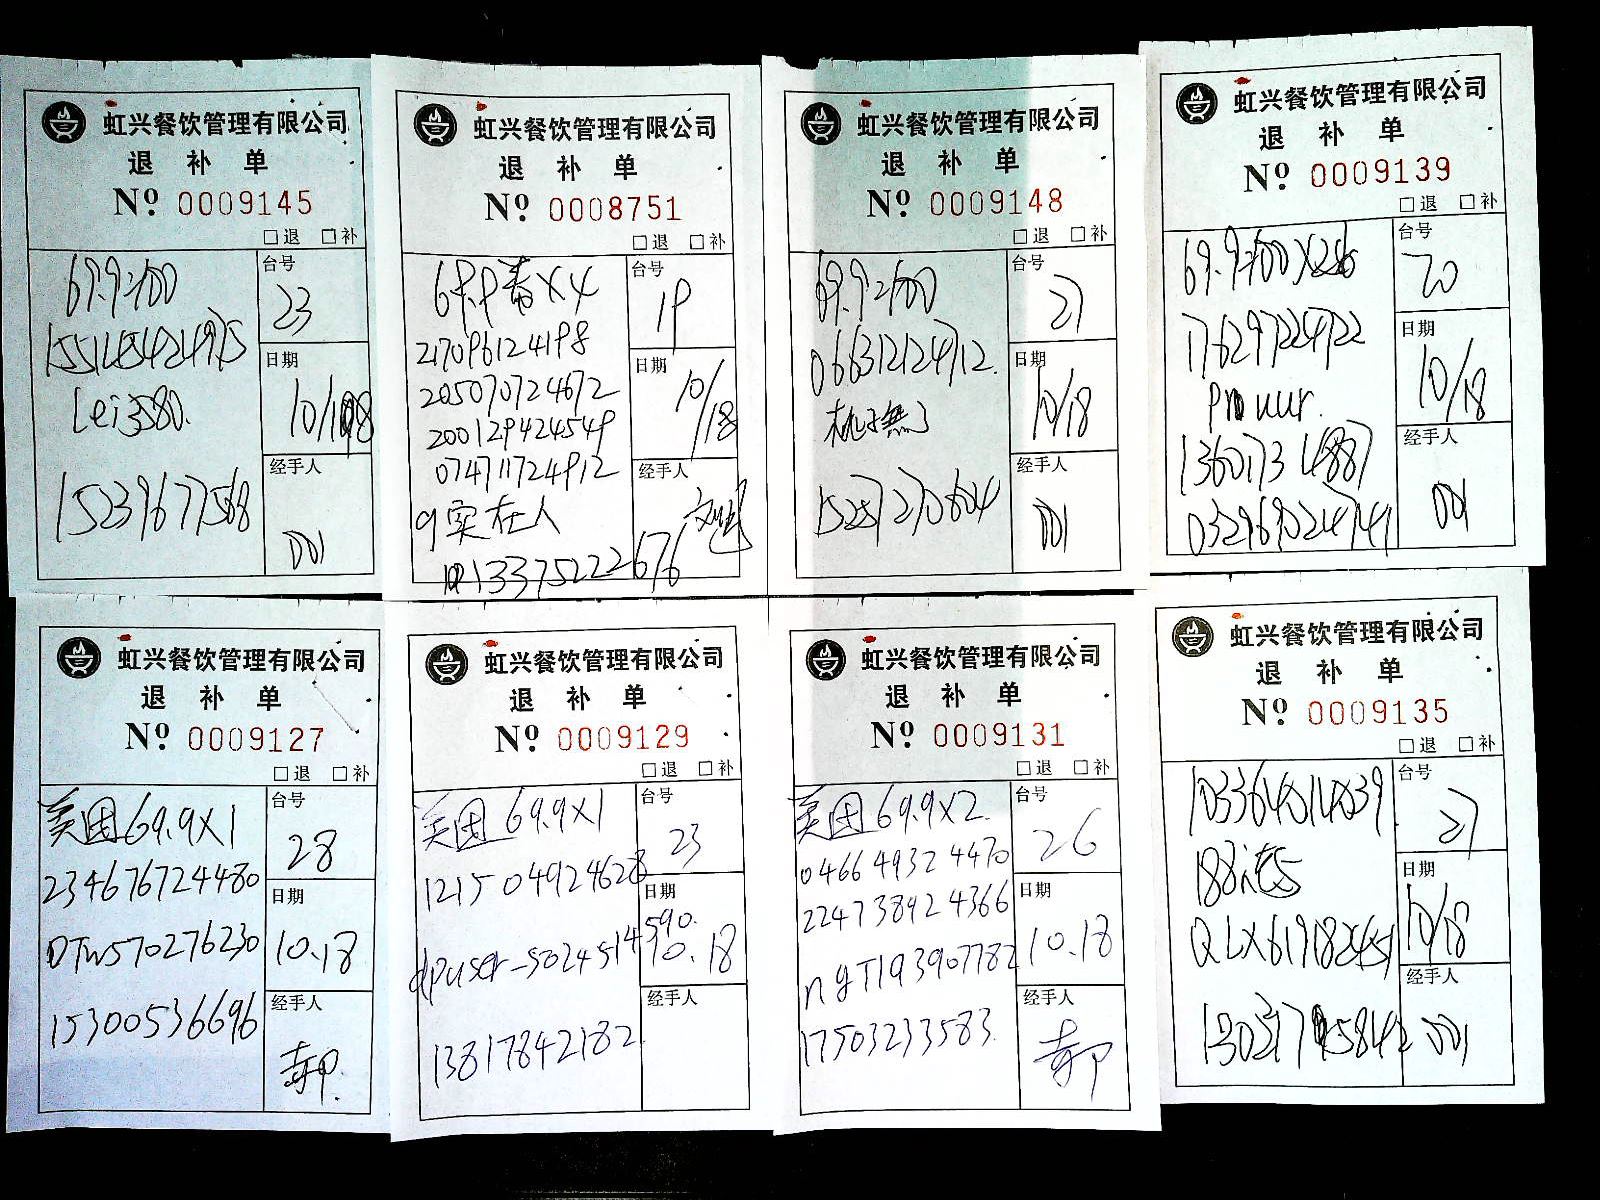 虹兴餐饮管理有限公司
退 补 单
Nº 0009145
□退 □补
69.9=100
台号
23
日期
lei3580.
10/18
15239677568
经手人
001
虹兴餐饮管理有限公司
退 补 单
Nº 0008751
□退 □补
台号
19
217096124198
205070724672
200129424549
074711724912
日期
10/18
实在人
13375222676
经手人
虹兴餐饮管理有限公司
退 补 单
Nº 0009148
□退 □补
69.9=100
066312124712.
台号
27
日期
10/18
15257270604
经手人
001
虹兴餐饮管理有限公司
退 补 单
Nº 0009139
□退 □补
台号
20
176297224722
日期
10/18
032969024741
经手人
001
虹兴餐饮管理有限公司
退 补 单
Nº 0009127
□退 □补
美团69.9X1
234676724480
DTW570276230
15300536696
台号
28
日期
10.18
经手人
虹兴餐饮管理有限公司
退 补 单
Nº 0009129
□退 □补
美团69.9X1
121504924628
dpuser-5024514590.
13817842182
台号
23
日期
10.18
经手人
虹兴餐饮管理有限公司
退 补 单
Nº 0009131
□退 □补
美团69.9X2
046649324470
224738924366
ngT193907782
17503233583.
台号
26
日期
10.18
经手人
虹兴餐饮管理有限公司
退 补 单
Nº 0009135
□退 □补
103364014039
台号
27
日期
10/18
经手人
001